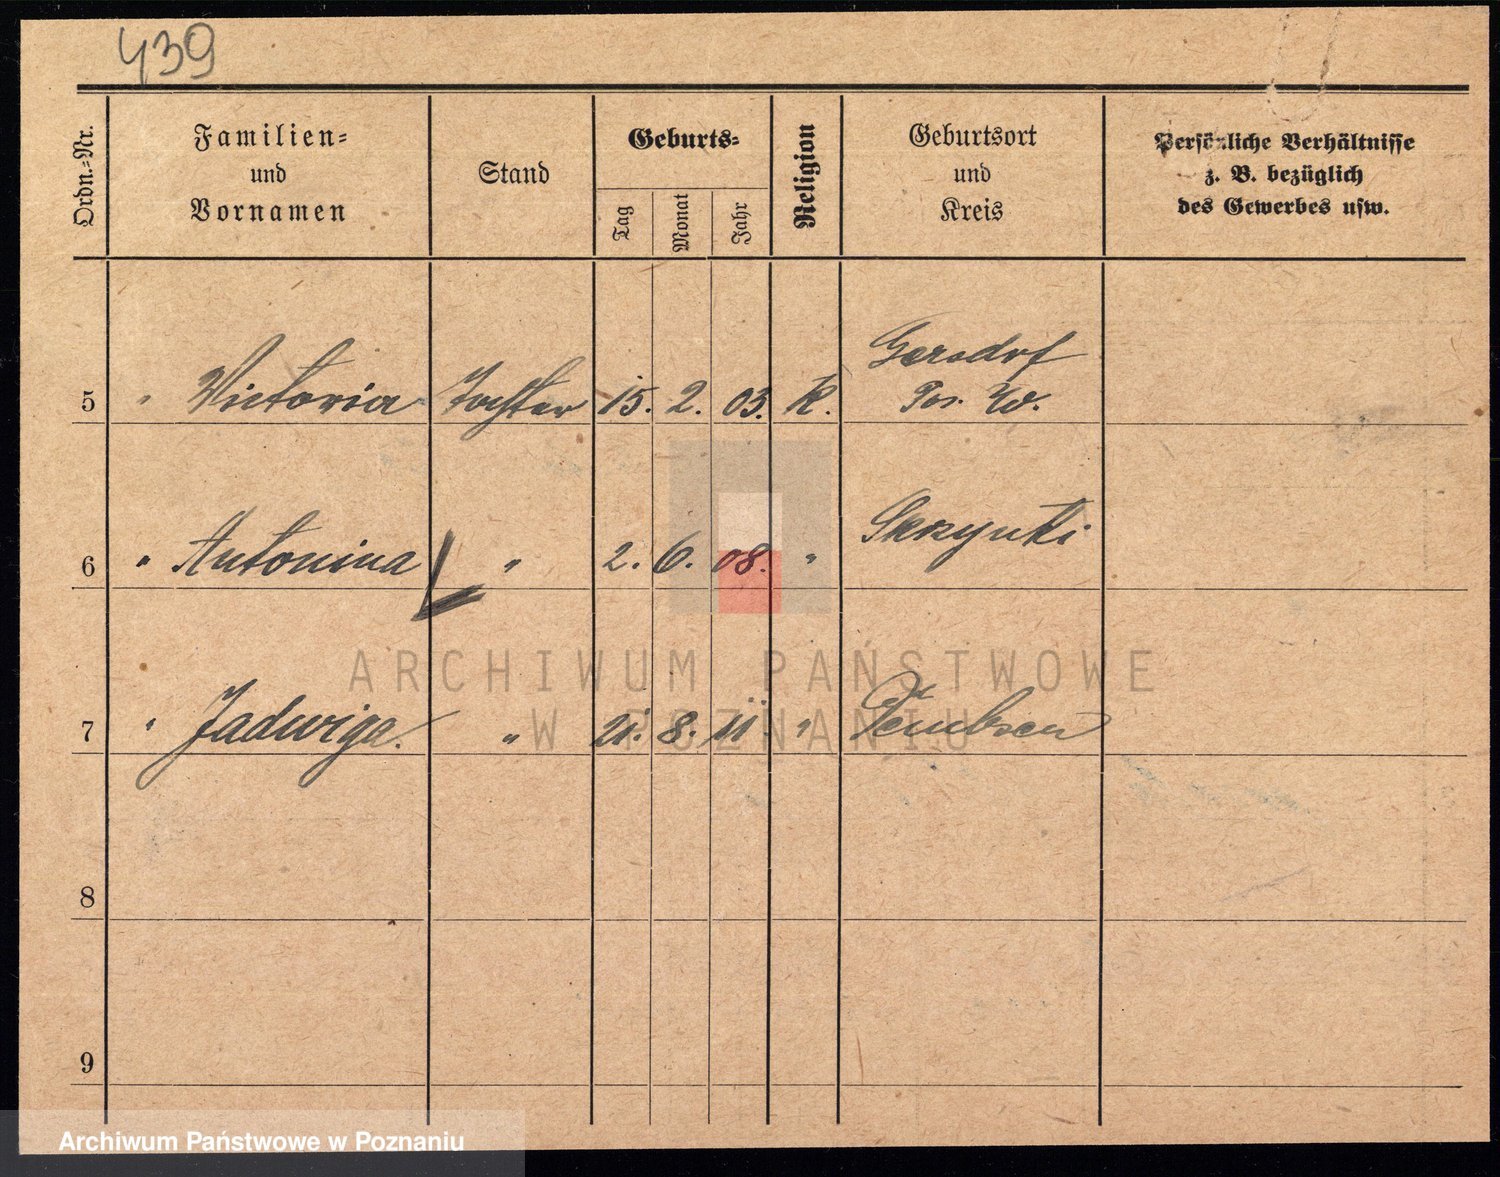 439
Ordn.-Nr.
Familien-
und
Vornamen
Stand
Geburts-
Tag
Monat
Jahr
Religion
Geburtsort
und
Kreis
Persönliche Verhältnisse
z. B. bezüglich
des Gewerbes usw.
Gersdorf
5 " Victoria Tochter 15. 2. 03. K. Pos. W.
6 " Antonina " 2. 6. 08. " Skrzynki
7 " Jadwiga. " 21. 8. 11. "
8
9
ARCHIWUM PAŃSTWOWE
W POZNANIU
Archiwum Państwowe w Poznaniu